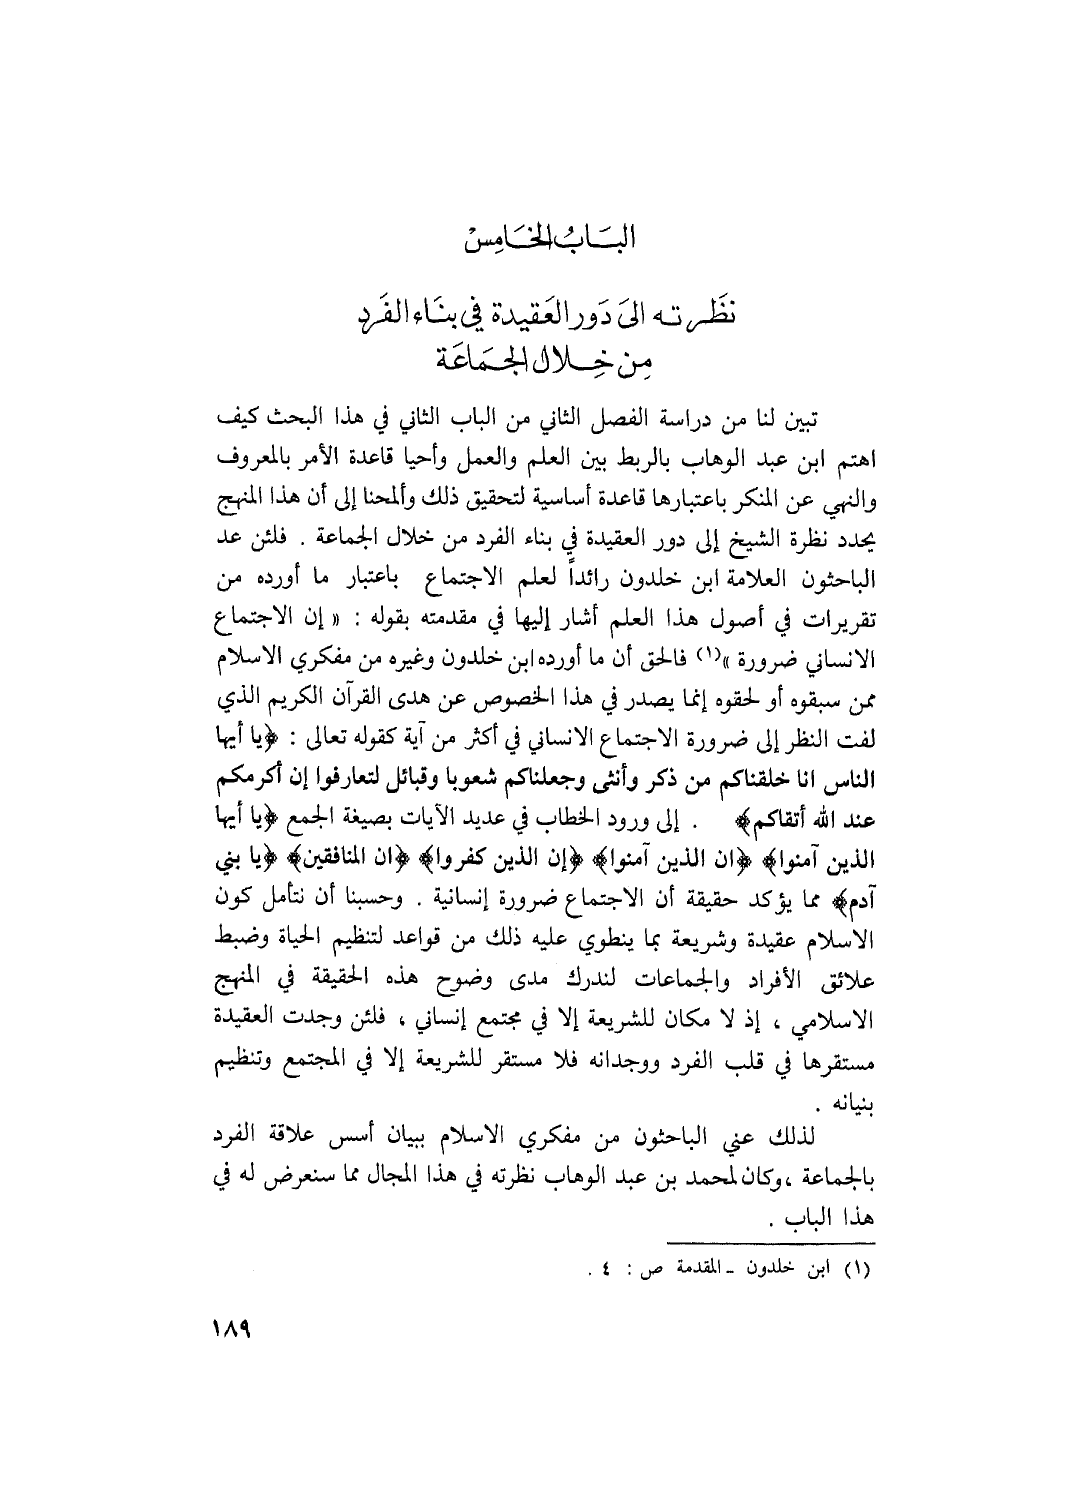 البَابُ الخَامِسْ
نظَرته الىَ دَور العَقيدة في بنَاء الفَردِ
مِن خِلال الجَمَاعَة
تبين لنا من دراسة الفصل الثاني من الباب الثاني في هذا البحث كيف
اهتم ابن عبد الوهاب بالربط بين العلم والعمل وأحيا قاعدة الأمر بالمعروف
والنهي عن المنكر باعتبارها قاعدة أساسية لتحقيق ذلك وألمحنا إلى أن هذا المنهج
يحدد نظرة الشيخ إلى دور العقيدة في بناء الفرد من خلال الجماعة . فلئن عد
الباحثون العلامة ابن خلدون رائداً لعلم الاجتماع باعتبار ما أورده من
تقريرات في أصول هذا العلم أشار إليها في مقدمته بقوله : « إن الاجتماع
الانساني ضرورة »(١) فالحق أن ما أورده ابن خلدون وغيره من مفكري الاسلام
ممن سبقوه أو لحقوه إنما يصدر في هذا الخصوص عن هدى القرآن الكريم الذي
لفت النظر إلى ضرورة الاجتماع الانساني في أكثر من آية كقوله تعالى : ﴿يا أيها
الناس انا خلقناكم من ذكر وأنثى وجعلناكم شعوبا وقبائل لتعارفوا إن أكرمكم
عند الله أتقاكم﴾ . إلى ورود الخطاب في عديد الآيات بصيغة الجمع ﴿يا أيها
الذين آمنوا﴾ ﴿ان الذين آمنوا﴾ ﴿إن الذين كفروا﴾ ﴿ان المنافقين﴾ ﴿يا بني
آدم﴾ مما يؤكد حقيقة أن الاجتماع ضرورة إنسانية . وحسبنا أن نتأمل كون
الاسلام عقيدة وشريعة بما ينطوي عليه ذلك من قواعد لتنظيم الحياة وضبط
علائق الأفراد والجماعات لندرك مدى وضوح هذه الحقيقة في المنهج
الاسلامي ، إذ لا مكان للشريعة إلا في مجتمع إنساني ، فلئن وجدت العقيدة
مستقرها في قلب الفرد ووجدانه فلا مستقر للشريعة إلا في المجتمع وتنظيم
بنيانه .
لذلك عني الباحثون من مفكري الاسلام ببيان أسس علاقة الفرد
بالجماعة ،وكان لمحمد بن عبد الوهاب نظرته في هذا المجال مما سنعرض له في
هذا الباب .
(١) ابن خلدون ـ المقدمة ص : ٤ .
١٨٩